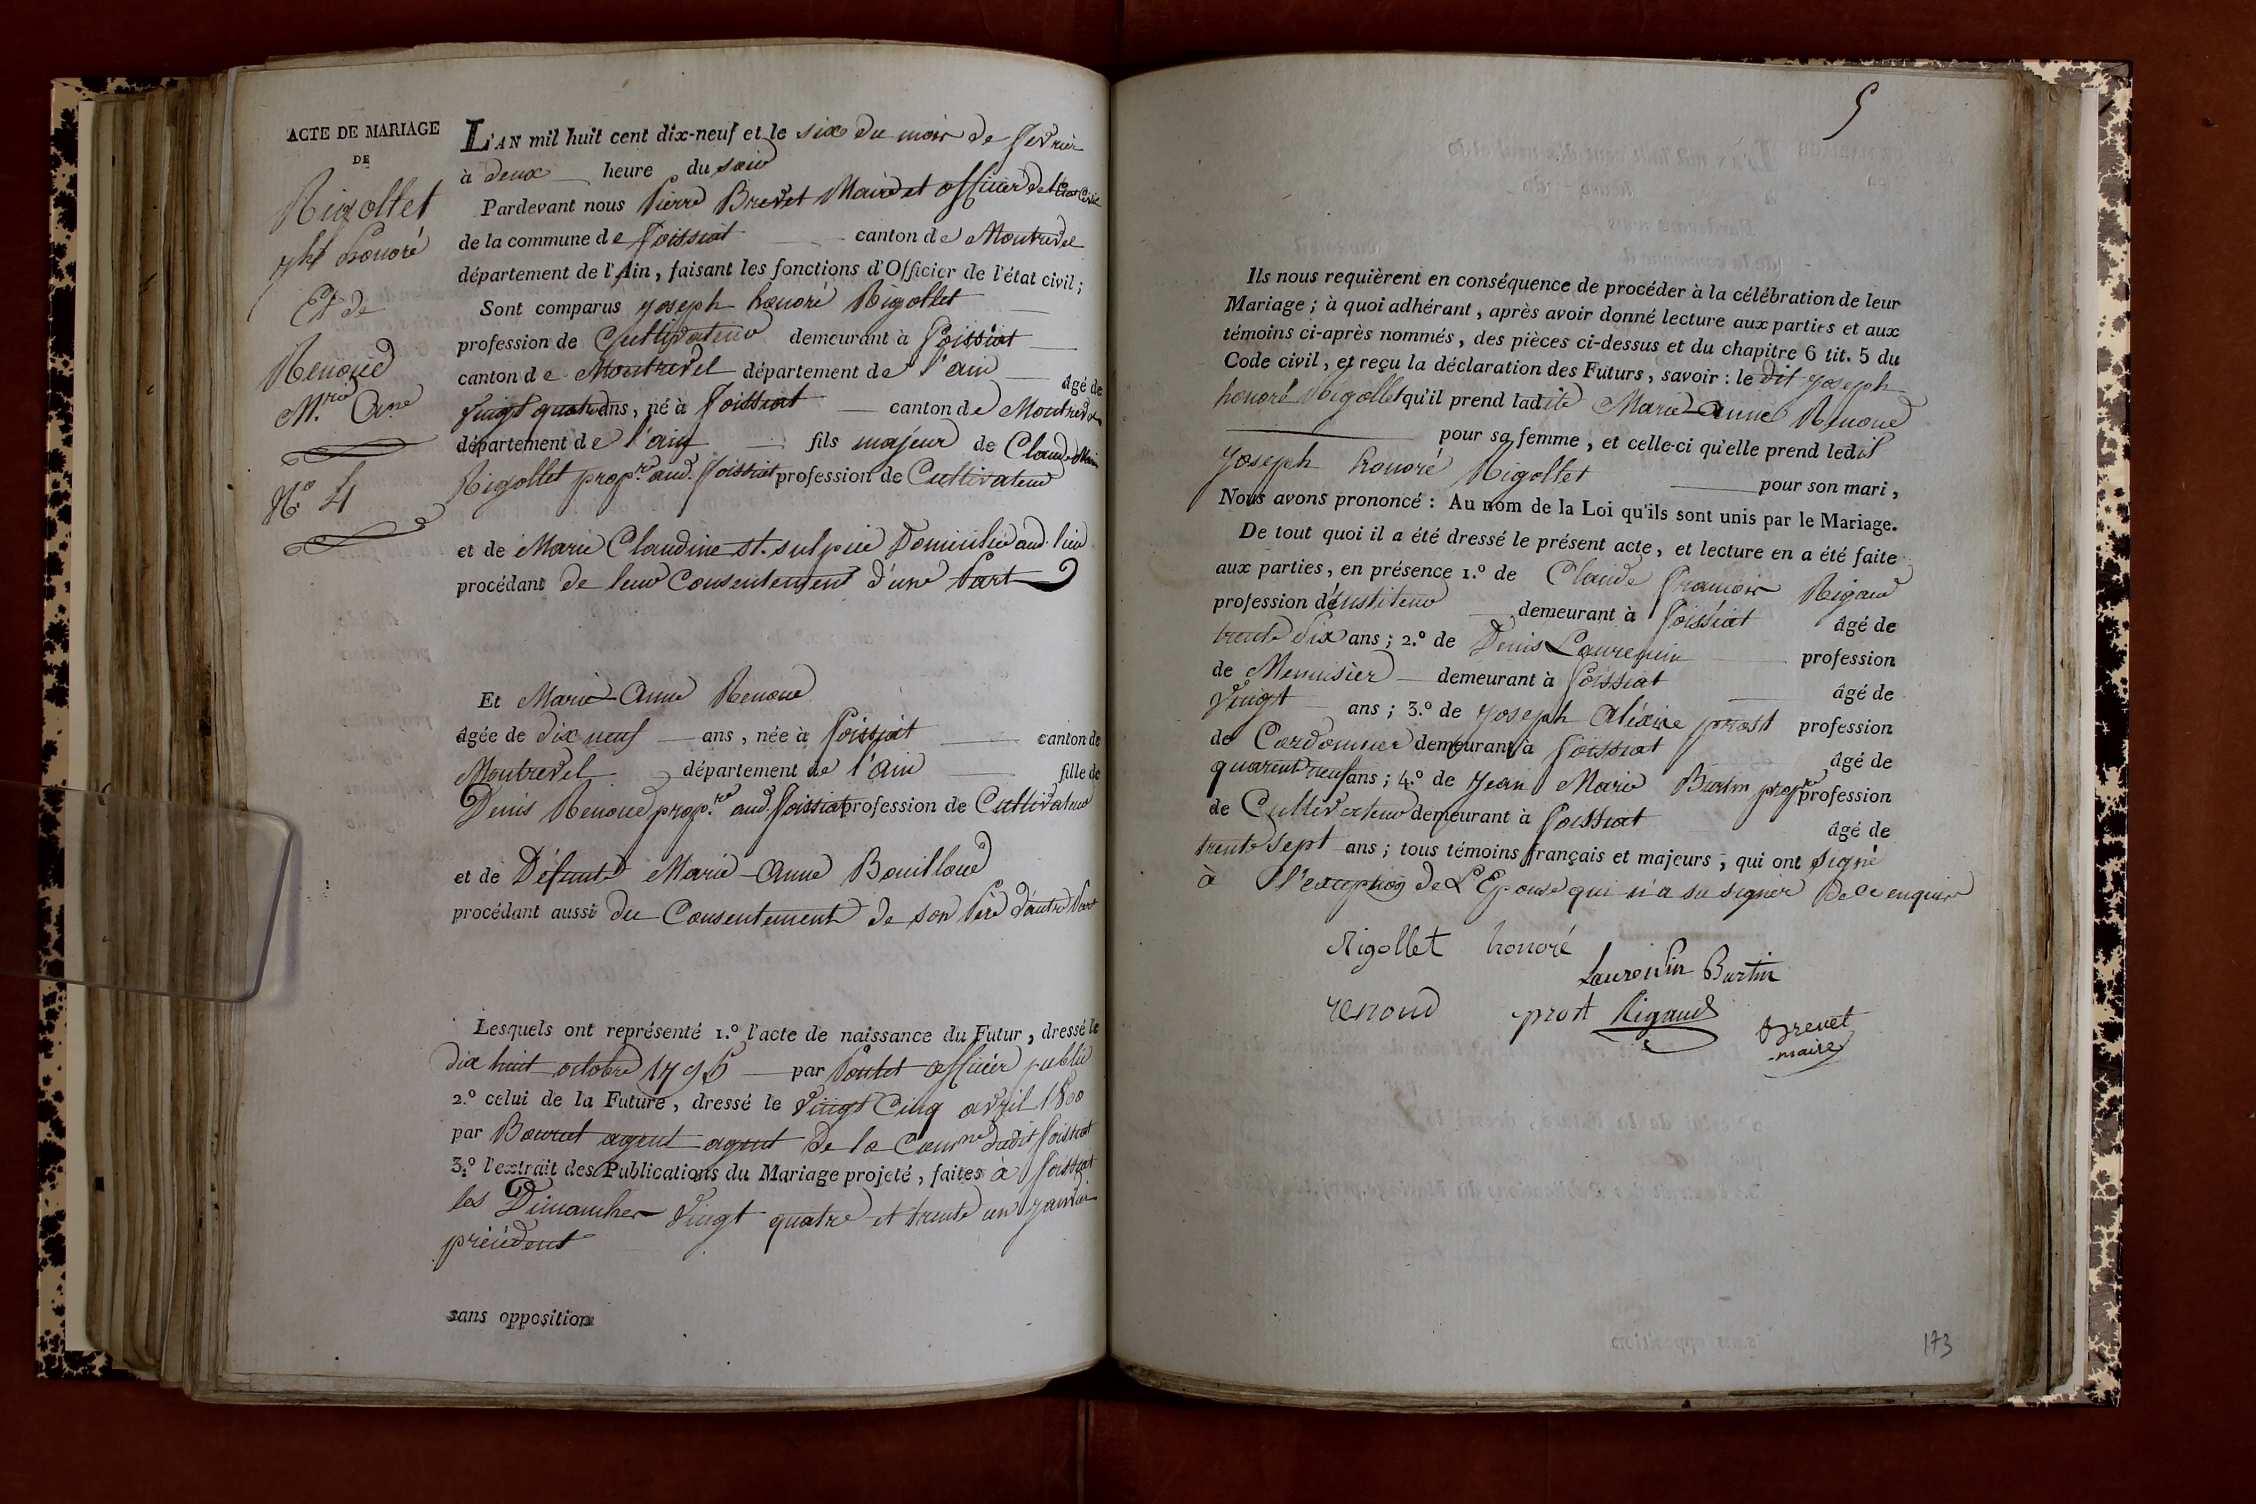 ACTE DE MARIAGE
DE
Rigollet
jph honoré
Et de
Renoud
M.rie Ane
N.º 4
L'AN mil huit cent dix-neuf et le six du mois de fevrier
à deux heure du soir
Pardevant nous Pierre Brevet Maire et officier de l'Etat Civil
de la commune de foissiat canton de Montrevel
département de l'Ain, faisant les fonctions d'Officier de l'état civil;
Sont comparus joseph honoré Rigollet
profession de Cultivateur demeurant à foissiat
canton de Montrevel département de l'ain âgé de
vingt quatre ans, né à foissiat canton de Montrevel
département de l'ain fils majeur de Claude Marie
Rigollet prop.re aud. foissiat profession de Cultivateur
et de Marie Claudine st. sulpice Domiciliée aud. lieu
procédant de leur Consentement d'une Part
Et Marie Anne Renoud
âgée de dix neuf ans, née à foissiat canton de
Montrevel département de l'ain fille de
Denis Renoud prop.re aud. foissiat profession de Cultivateur
et de Défunte Marie Anne Bouilloud
procédant aussi du Consentement de son Père d'autre Part
Lesquels ont représenté 1.º l'acte de naissance du Futur, dressé le
dix huit octobre 1795 par officier public
2.º celui de la Future, dressé le vingt Cinq avril 1800
par agent agent de la Com.ne dudit foissiat
3.º l'extrait des Publications du Mariage projeté, faites à foissiat
les Dimanches vingt quatre et trente un janvier
précédent
sans opposition
5
Ils nous requièrent en conséquence de procéder à la célébration de leur
Mariage; à quoi adhérant, après avoir donné lecture aux parties et aux
témoins ci-après nommés, des pièces ci-dessus et du chapitre 6 tit. 5 du
Code civil, et reçu la déclaration des Futurs, savoir: le dit joseph
honoré Rigollet qu'il prend ladite Marie anne Renoud
pour sa femme, et celle-ci qu'elle prend ledit
joseph honoré Rigollet pour son mari,
Nous avons prononcé: Au nom de la Loi qu'ils sont unis par le Mariage.
De tout quoi il a été dressé le présent acte, et lecture en a été faite
aux parties, en présence 1.º de Claude françois Rigaud
profession d'instituteur demeurant à foissiat âgé de
trente six ans; 2.º de Denis Laurencin profession
de Menuisier demeurant à foissiat âgé de
vingt ans; 3.º de joseph alexire prost profession
de Cordonnier demeurant à foissiat âgé de
quarante neuf ans; 4.º de jean Marie Burtin prop.re profession
de Cultivateur demeurant à foissiat âgé de
trente sept ans; tous témoins français et majeurs, qui ont signé
à l'exception de L'Epouse qui n'a su signer de ce enquise
Rigollet honoré
Laurencin Burtin
renoud prost Rigaud
Brevet
maire
173